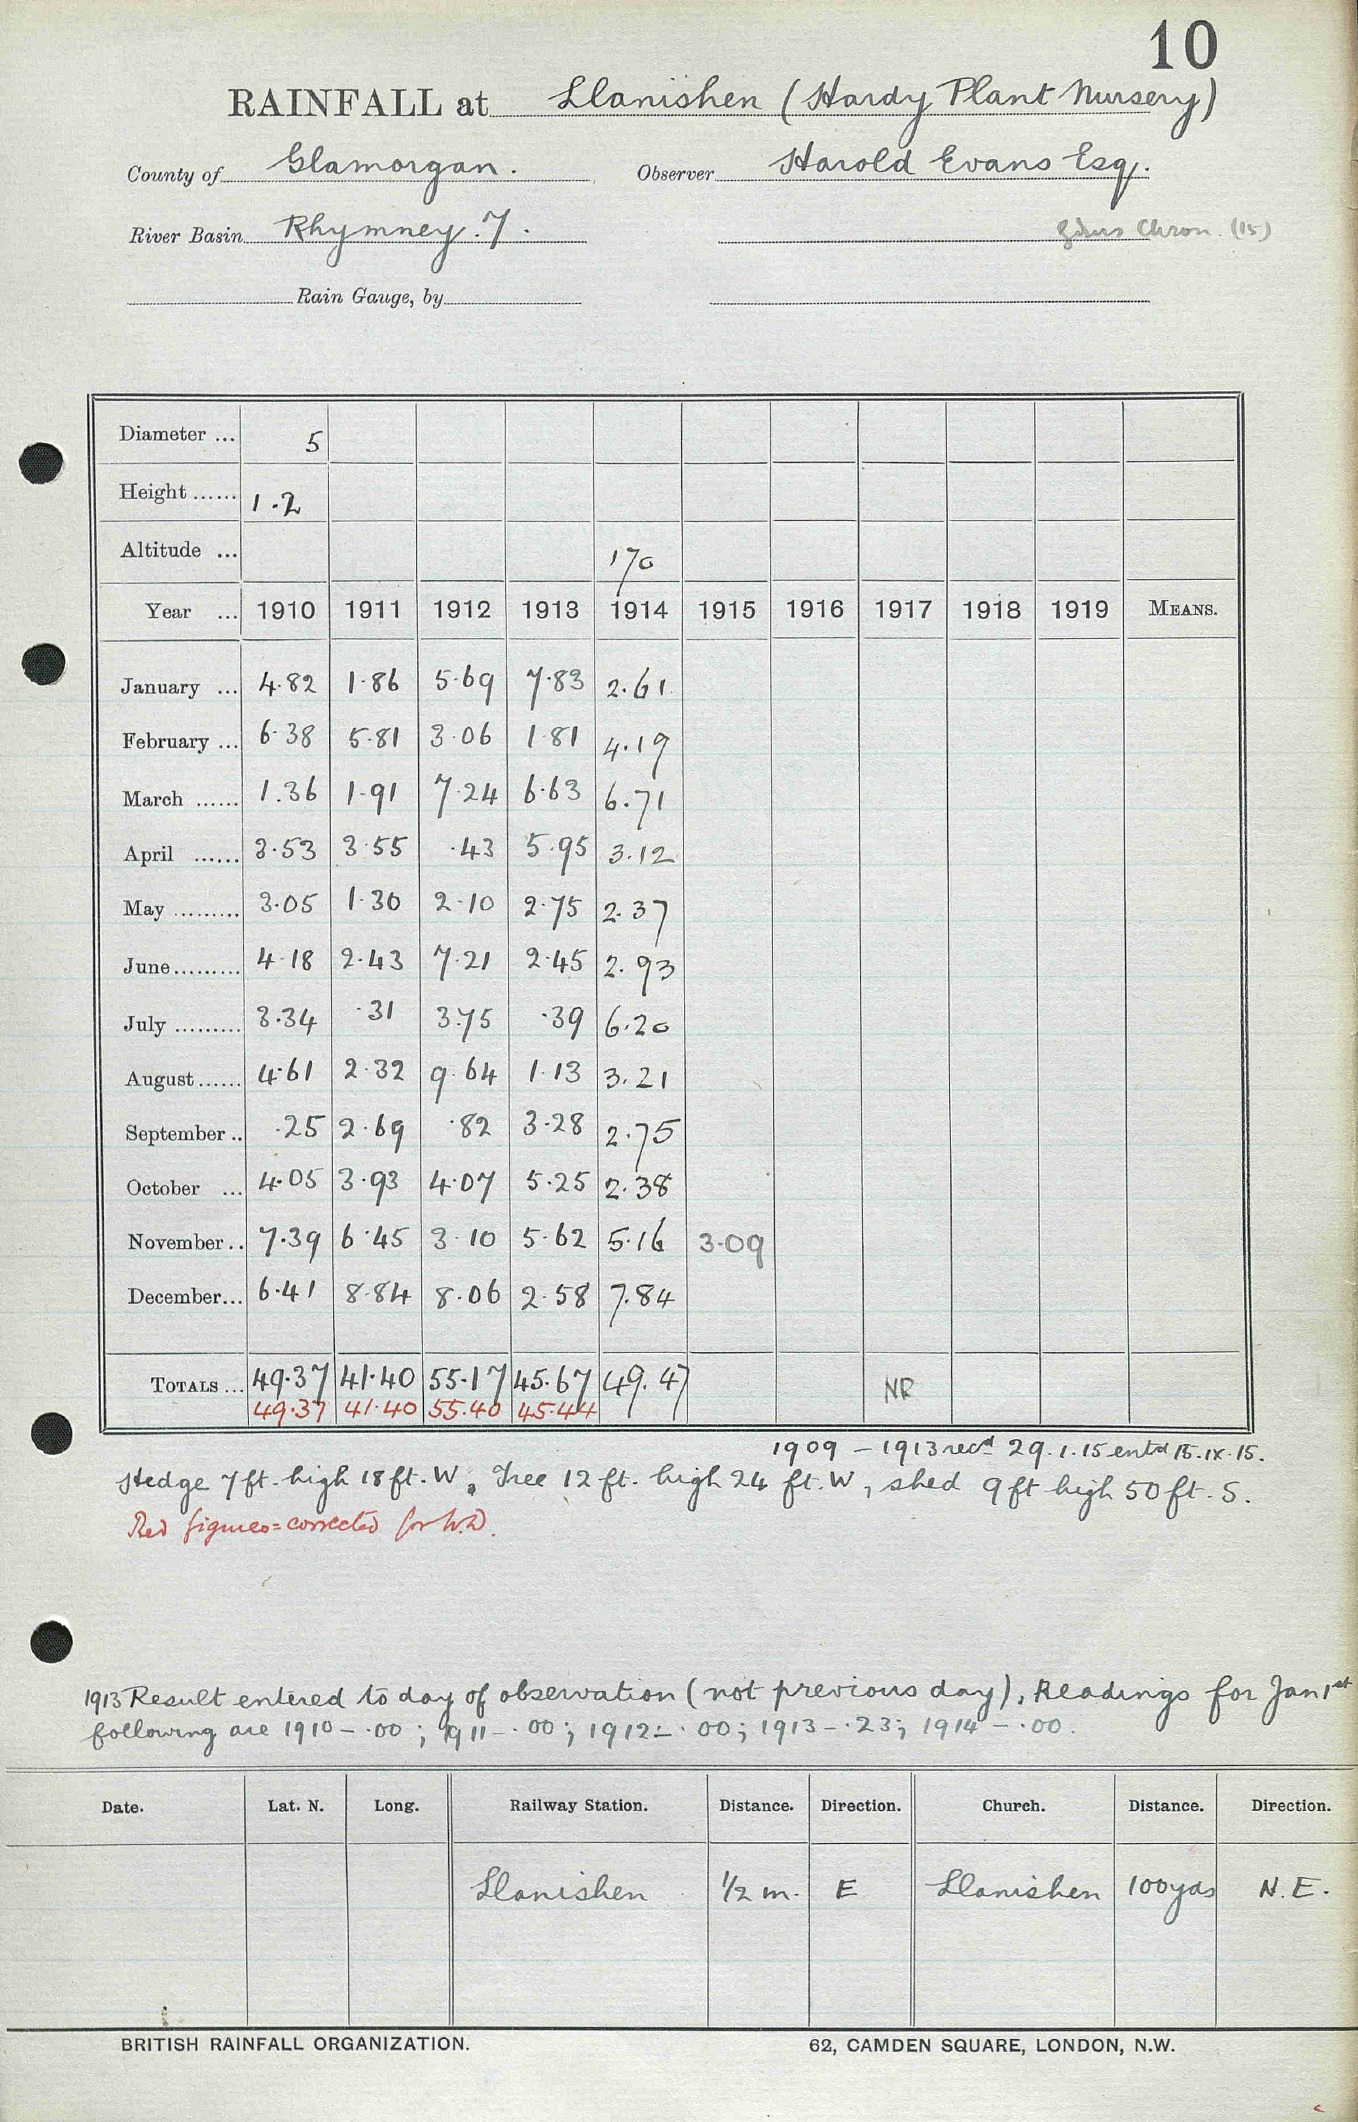 10
RAINFALL at Llanishen (Hardy Plant Nursery)
County of Glamorgan. Observer Harold Evans Esq.
River Basin Rhymney. 7. Chron. (15)
Rain Gauge, by
Diameter ... 5
Height ...... 1.2
Altitude ... 170
Year ... 1910 1911 1912 1913 1914 1915 1916 1917 1918 1919 MEANS.
January ... 4.82 1.86 5.69 7.83 2.61
February ... 6.38 5.81 3.06 1.81 4.19
March ...... 1.36 1.91 7.24 6.63 6.71
April ...... 3.53 3.55 .43 5.95 3.12
May ......... 3.05 1.30 2.10 2.75 2.37
June......... 4.18 2.43 7.21 2.45 2.93
July ......... 3.34 .31 3.75 .39 6.20
August...... 4.61 2.32 9.64 1.13 3.21
September .. .25 2.69 .82 3.28 2.75
October ... 4.05 3.93 4.07 5.25 2.38
November .. 7.39 6.45 3.10 5.62 5.16 3.09
December... 6.41 8.84 8.06 2.58 7.84
TOTALS ... 49.37 41.40 55.17 45.67 49.47 NR
49.37 41.40 55.40 45.44
1909 - 1913 recd 29.1.15 entd 15.ix.15.
Hedge 7 ft. high 18 ft. W, Tree 12 ft. high 24 ft. W, shed 9 ft high 50 ft. S.
Red figures = corrected for N.D.
1913 Result entered to day of observation (not previous day), Readings for Jan 1st
following are 1910 - .00; 1911 - .00; 1912 - .00; 1913 - .23; 1914 - .00.
Date. Lat. N. Long. Railway Station. Distance. Direction. Church. Distance. Direction.
Llanishen 1/2 m. E Llanishen 100 yds N.E.
BRITISH RAINFALL ORGANIZATION. 62, CAMDEN SQUARE, LONDON, N.W.